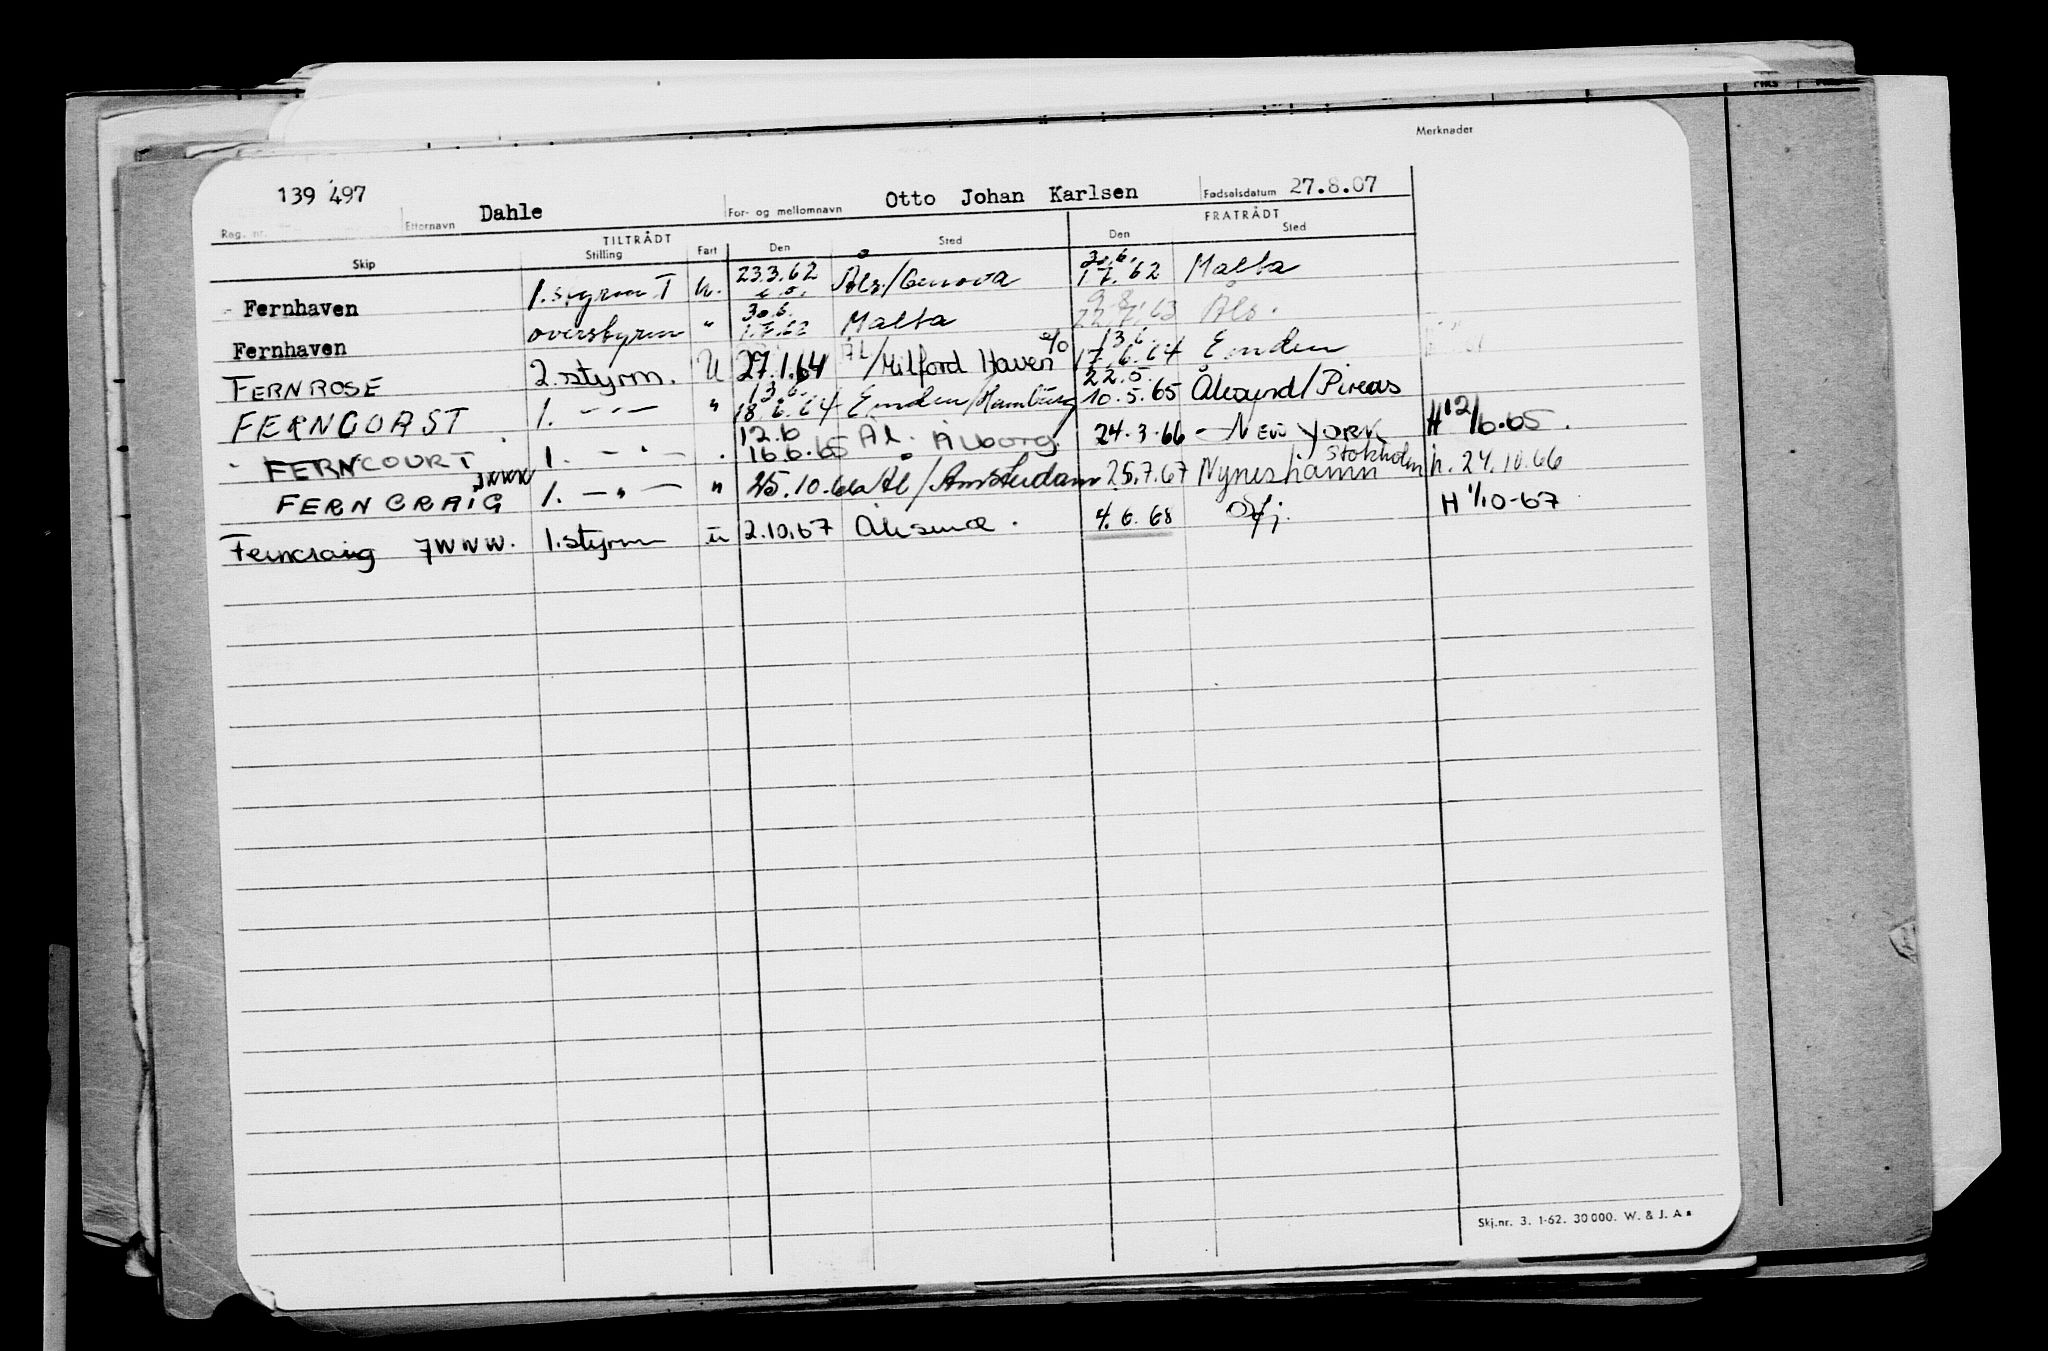 Merknader
139 497 Dahle Otto Johan Karlsen 27.8.07
Reg. nr. Etternavn For- og mellomnavn Fødselsdatum
TILTRÅDT FRATRÅDT
Skip Stilling Fart Den Sted Den Sted
Fernhaven 1. styrm T U. 23.3.62 Åls./Genova 30.6. 62 Malta
Fernhaven overstyrm " 30.6. 62 Malta 63 Åls.
FERNROSE 2. styrm. U 27.1.64 ÅL/Milford Haven 13.6. 17.6.64 Emden
FERNCOAST 1. -"- " 13.6. 18.6.64 Emden/Hamburg 22.5. 10.5.65 Ålesund/Pireas
FERNCOURT 1. -"- 12.6 16.6.65 Ål. Ålborg. 24.3.66 - NEW YORK H 12/6-65.
FERNCRAIG JWWW 1. -"- " 25.10.66 Ål/Amsterdam 25.7.67 Nyneshamn Stokholm h. 24.10.66
Ferncraig JWWW. 1. styrm u 2.10.67 4.6.68 H 1/10-67
Skj.nr. 3. 1-62. 30 000. W. & J. A s